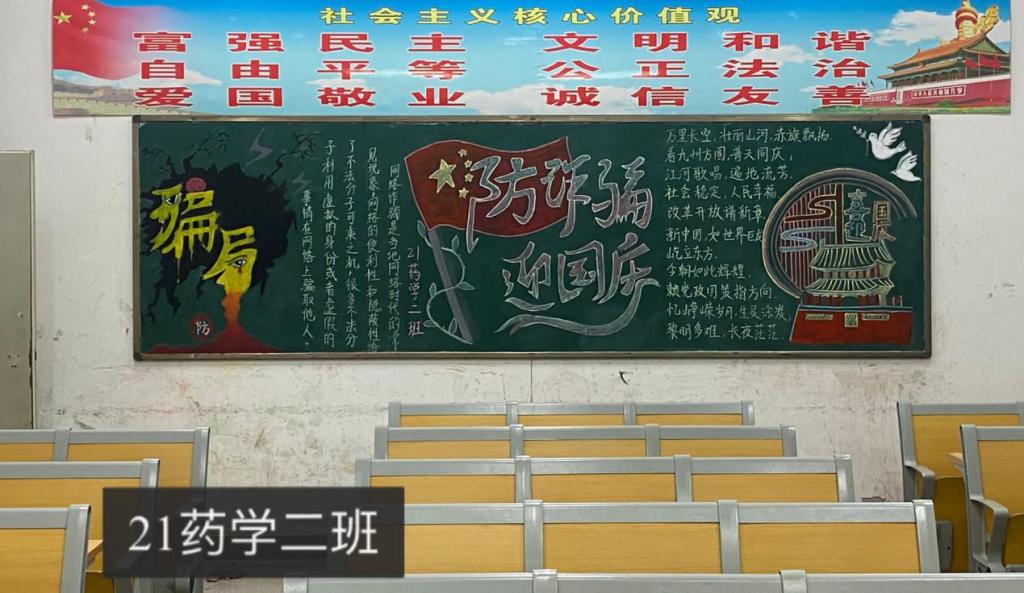 社会主义核心价值观
富强民主 文明和谐
自由平等 公正法治
爱国敬业 诚信友善
骗局
防
网络诈骗是当地网络时代的常
见现象,网络的便利性和隐蔽性给
了不法分子可乘之机,很多不法分
子利用虚拟的身份或者虚假的
事情在网络上骗取他人。
21药学二班
防诈骗
迎国庆
万里长空,壮丽山河,赤旗飘扬.
看九州方圆,普天同庆,
江河歌唱,遍地流芳.
社会稳定,人民幸福
改革开放谱新章.
新中国,如世界巨
屹立东方.
今朝如此辉煌,
赖党政国策指方向.
忆峥嵘岁月,生灵涂炭,
黎明多难,长夜茫茫.
喜迎
国庆
21药学二班